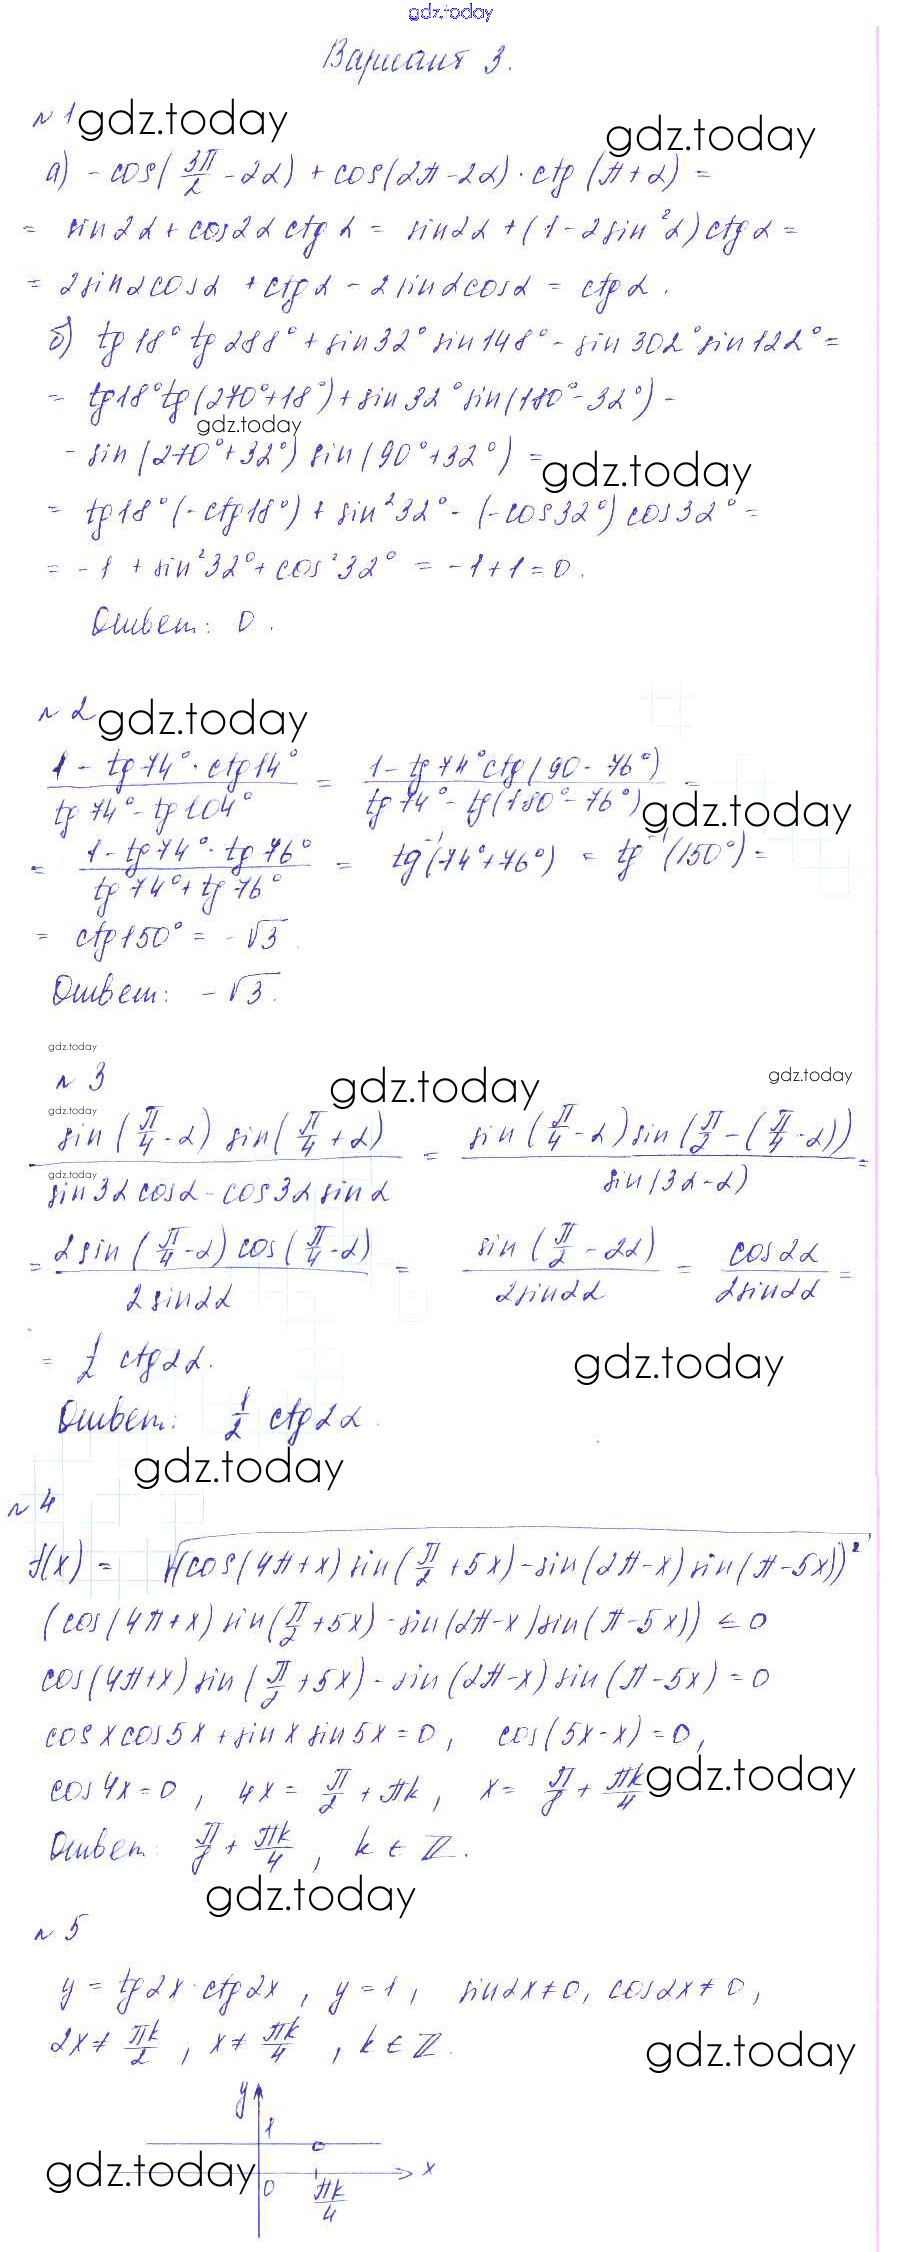 gdz.today
Вариант 3.
№ 1 gdz.today
gdz.today
а) - cos(3π/2 - 2α) + cos(2π - 2α) · ctg (π + α) =
= sin2α + cos2α ctg α = sin2α + (1 - 2sin²α) ctg α =
= 2sinαcosα + ctg α - 2sinαcosα = ctg α.
б) tg 18° tg 288° + sin 32° sin 148° - sin 302° sin 122° =
= tg18° tg(270°+18°) + sin 32° sin(180° - 32°) -
gdz.today
- sin(270° + 32°) sin(90° + 32°) =
gdz.today
= tg18° (-ctg18°) + sin²32° - (-cos32°) cos32° =
= -1 + sin²32° + cos²32° = -1 + 1 = 0.
Ответ: 0.
№ 2 gdz.today
(1 - tg 74° · ctg 14°)/(tg 74° - tg 104°) = (1 - tg 74° ctg(90 - 76°))/(tg 74° - tg(180° - 76°)) =
gdz.today
= (1 - tg 74° · tg 76°)/(tg 74° + tg 76°) = tg⁻¹(74° + 76°) = tg⁻¹(150°) =
= ctg 150° = -√3.
Ответ: -√3.
gdz.today
№ 3
gdz.today
gdz.today
gdz.today
(sin(π/4 - α) sin(π/4 + α))/(sin3α cosα - cos3α sinα) = (sin(π/4 - α) sin(π/2 - (π/4 - α)))/(sin(3α - α)) =
gdz.today
= (2 sin(π/4 - α) cos(π/4 - α))/(2 sin2α) = (sin(π/2 - 2α))/(2sin2α) = (cos2α)/(2sin2α) =
= 1/2 ctg2α.
gdz.today
Ответ: 1/2 ctg2α.
gdz.today
№ 4
f(x) = √(-(cos(4π+x) sin(π/2 + 5x) - sin(2π-x) sin(π-5x))²)
(cos(4π+x) sin(π/2 + 5x) - sin(2π-x) sin(π-5x)) ≤ 0
cos(4π+x) sin(π/2 + 5x) - sin(2π-x) sin(π-5x) = 0
cosx cos5x + sinx sin5x = 0, cos(5x-x) = 0,
cos4x = 0, 4x = π/2 + πk, x = π/8 + πk/4
gdz.today
Ответ: π/8 + πk/4, k ∈ Z.
gdz.today
№ 5
y = tg2x · ctg2x, y = 1, sin2x ≠ 0, cos2x ≠ 0,
2x ≠ πk/2, x ≠ πk/4, k ∈ Z.
gdz.today
y
1
gdz.today
x
0
πk/4